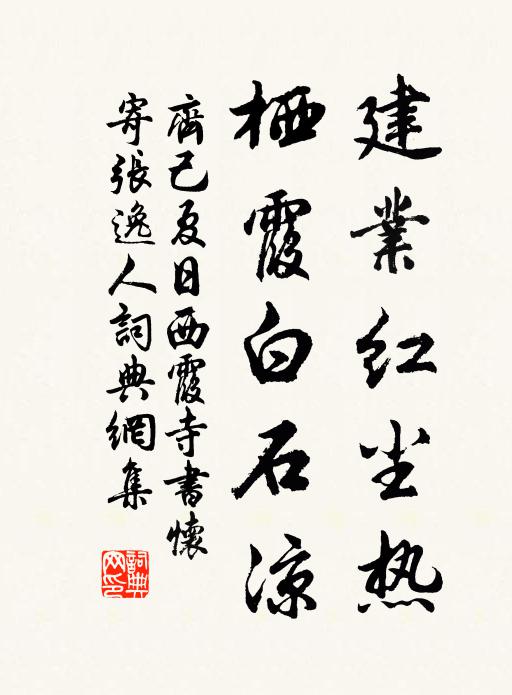 建業红尘热
栖霞白石凉
齊己夏日西霞寺書懷
寄張逸人詞典網集
詞典
网印